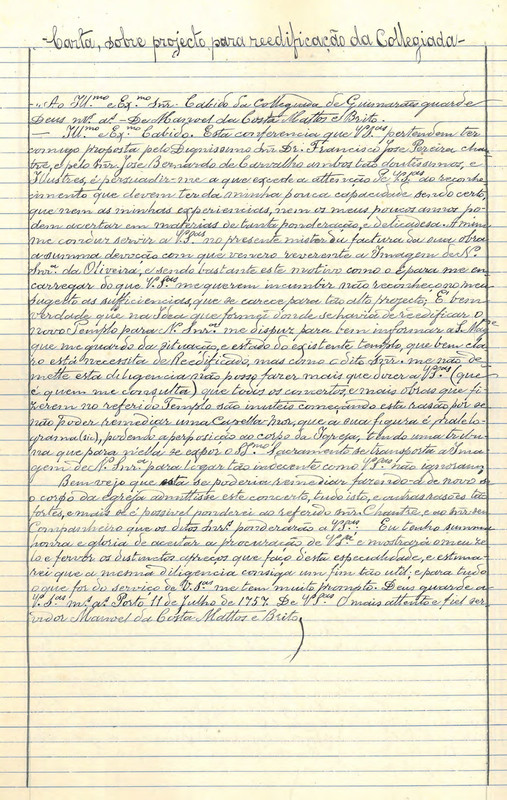 -Carta, sobre projecto, para reedificação da Collegiada-
-"Ao Ill.mo e Ex.mo Snr. Cabido da Collegiada de Guimarães guarde
Deus m.s a.s - De Manoel da Costa Mattos e Brito.
- Ill.mo e Ex.mo Cabido. Esta conferencia que V.as S.as pertendem ter
comigo proposta pelo Dignissimo Snr. Dr. Francisco José Pereira Chan-
tre, e pelo Snr. José Bernardo de Carvalho ambos tão doutissimos, e
Illustres, é persuadir-me a que excede a attenção de V.as S.as ao reconhe-
cimento que devem ter da minha pouca capacidade sendo certo,
que nem as minhas experiencias, nem os meus poucos annos po-
dem acertar em materias de tanta ponderação, e delicadesa. A mim
me conduz servir a V.as S.as no presente mister da factura da sua obra
a summa devoção com que venero reverente a Imagem de N.
Snr.a da Oliveira, e sendo bastante este motivo como o é para me en-
carregar do que V.as S.as me queram incumbir não reconheço no meu
sugeito as sufficiencias, que se carece para tão alto projecto; É bem
verdade que na Idea que formei donde se havia de reedificar o
novo Templo para N. Snr.a me dispuz para bem informar a S. Mag.e
que me guarda da situação, e estado do existente templo, que bem cla-
ro está necessita de Reedificado, mas como o dito Snr. me não de-
mette esta diligencia não posso fazer mais que dizer a V.as S.as (que
é quem me consulta) que todos os concertos, e mais obras que fi-
zerem no referido Templo são inuteis começando esta rasão por se
não poder remediar uma Capella mor, que a sua figura é pralelo-
grama (sic), podendo a perposição ao corpo da Igreja, tendo uma tribu-
na que para n'ella se expor o SS.mo Sacramento se transporta a Ima-
gem de N. Snr.a para logar tão indecente como V.as S.as não ignoram;
Bem vejo que esta se poderia remediar fazendo-a de novo se
o corpo da egreja admittisse este concerto, tudo isto, e outras rasões tão
fortes, e mais o é possivel ponderei ao referido Snr. Chantre, e ao Snr. seu
Companheiro que os ditos Snr.s ponderarão a V.as S.as Eu tenho summa
honra e gloria de aceitar a procuração de V.as S.as e mostrará o meu ze-
lo e fervor os distinctos apreços que faço desta especialidade, e estima-
rei que a mesma diligencia consiga um fim tão util; e para tudo
o que for do serviço de V.as S.as me tem muito prompto. Deus guarde a
V.as S.as m.s a.s Porto 11 de Julho de 1757. De V.as S.as O mais attento e fiel ser-
vidor Manoel da Costa Mattos e Brito